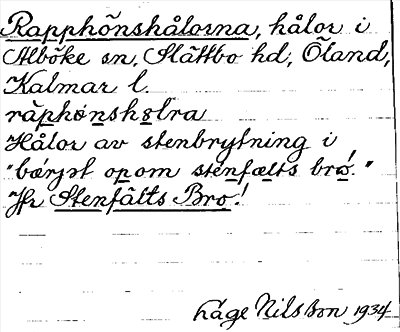 Rapphönshålorna, hålor i
Alböke sn, Slättbo hd, Öland,
Kalmar l.
ráphǿnshǫlra
Hålor av stenbrytning i
"bǽrjət opom stenfælts brǿ."
Jfr Stenfälts Bro!
Håge Nilsson 1934